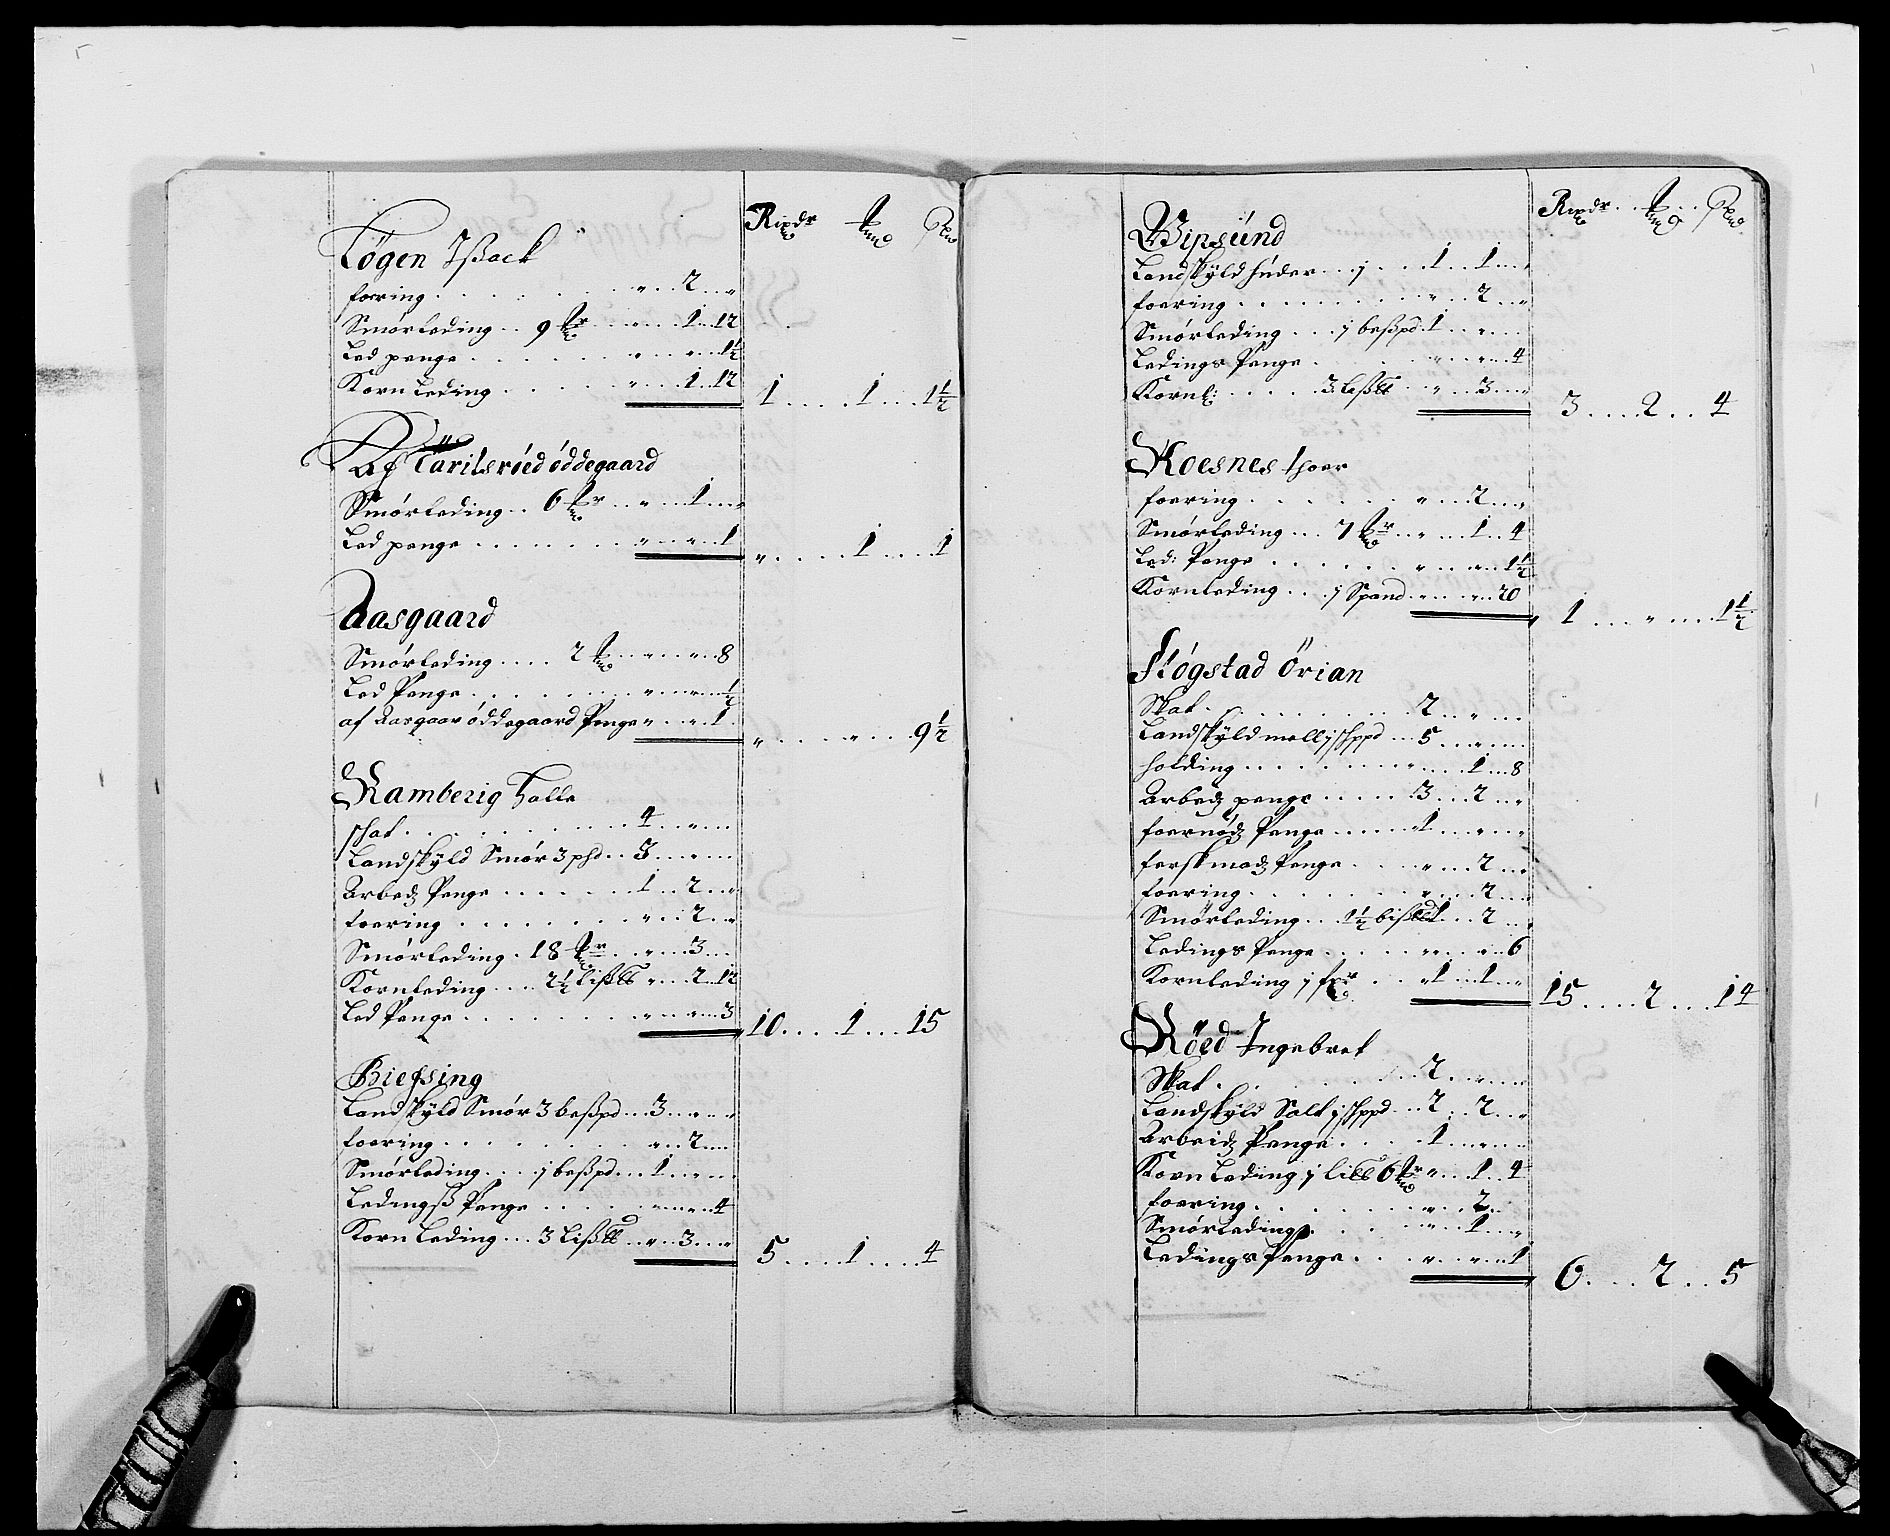 Rixdr mk s
Løgen Ißack
foering . . . „ . . 2 . . „
Smørleding . . 9 mkr . . „ . . 1 . . 12
Led penge . . . „ . . „ . . 1½
Korn Leding . . . „ . . 1 . . 12
1 . . . . 1 . . . 1½
Af Tarilsröed öddegaard
Smørleding . . 6 mkr . . „ . . 1 . . „
Led penge . . . „ . . „ . . 1
„ . . . . 1 . . . . 1
Aasgaard
Smørleding . . . . 2 mk . . „ . . „ . . 8
Led Penge . . . „ . . „ . . ½
af Aasgaar öddegaard Penge „ . . „ . . 1
„ . . . . „ . . . 9½
Ramberig Halle
schat . . . 4 . . „ . .
Landskyld Smör 3 phd . . 3 . . „ . .
Arbedz Penge . . . 1 . . 2 . . „
foering . . . „ . . 2 . . „
Smørleding . 18 mkr . . „ . . 3 . .
Kornleding . . . 2½ liß℔ „ . . 2 . . 12
Led Penge . . . „ . . „ . . 3
10 . . . . 1 . . . 15
Bieſsing
Landskyld Smør 3 beßpd . . . 3 . . „ . . „
foering . . . „ . . 2 . .
Smørleding . . . j beßpd . . . 1 . . „ . .
Ledingß Penge . . . „ . . „ . . 4
Korn Leding . . . 3 Liß℔ . . „ . . 3 . . „
5 . . . . 1 . . . . 4
Rixdr . . mk . . s
Wipsünd
Landskyld húder . . . j . . . 1 . . 1 . . „
foering . . . „ . . 2 . . „
Smørleding . . . j beßpd . 1 . . „ . .
Ledings Penge . . . „ . . „ . . 4
Kornl: . . . 3 Liß℔ . . „ . . 3 . . „
3 . . . . 2 . . . 4
Roesnes thoer
foering . . . „ . . 2 . . „
Smørleding . . . 7 mkr . . „ . . 1 . . 4
Led: Penge . . . „ . . „ . . 1½
Kornleding . . . j Spand . . „ . . „ . . 20
1 . . . „ . . . . 1½
Skögstad Örian
Skat . . . 2 . . „ . .
Landskyld mell j schppd . . . 5 . . „ . .
holding . . . „ . . 1 . . 8
Arbedz penge . . . 3 . . 2 . . „
foernödz Penge . . . 1 . . „ . . „
ferskmadz Penge . . . „ . . 2 . . „
foering . . . „ . . 2 . . „
Smørleding . . . 1½ bißpd 1 . . 2 . . „
Ledings Penge . . . „ . . „ . . 6
Kornleding j for . . . 1 . . 1 . . „
15 . . . . 2 . . . 14
Röed Ingebret
Skat . . . 2 . . „ . .
Landskyld Salt j schppd . . . 2 . . 2 . . „
Arbeidz Penge . . . 1 . . „ . . „
Korn Leding j liß℔ 6 mkr „ . . 1 . . 4
foering . . . „ . . 2 . .
Smørleding . . . „ . . 1 . . „
Ledings Penge . . . „ . . „ . . 1
6 . . . . 2 . . . 5